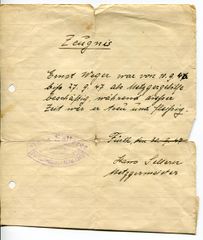 Zeugnis
Ernst Weger war von 10. 9. 46
bis 27. 9. 47 als Metzgergehilfe
beschäftigt während dieser
Zeit war er treu und fleißig.
Fürth, den
Hans
Metzgermeister